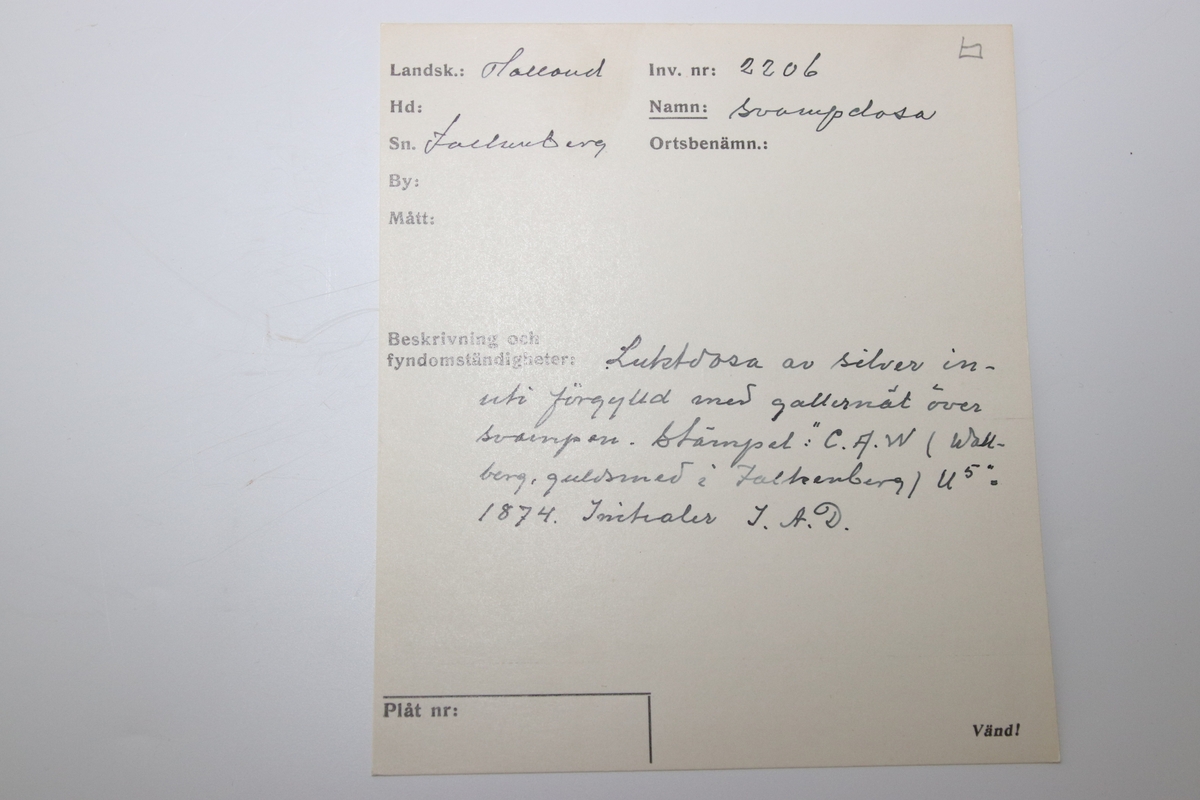 Landsk.: Halland
Inv. nr: 2206
Hd:
Namn: Svampdosa
Sn. Falkenberg
Ortsbenämn.:
By:
Mått:
Beskrivning och
fyndomständigheter: Luktdosa av silver in-
uti förgylld med gallernät över
svampen. Stämpel: "C.A.W (Wall-
berg, guldsmed i Falkenberg) U5":
1874. Initialer J. A. D.
Plåt nr:
Vänd!